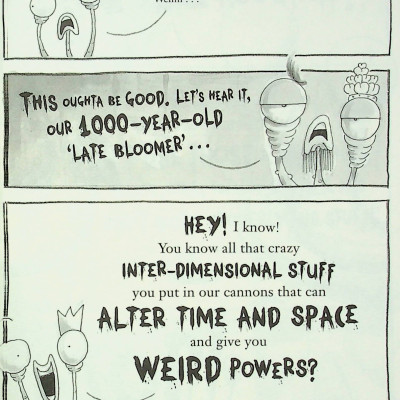 THIS OUGHTA BE GOOD. LET'S HEAR IT,
OUR 1000-YEAR-OLD
'LATE BLOOMER'...
HEY! I know!
You know all that crazy
INTER-DIMENSIONAL STUFF
you put in our cannons that can
ALTER TIME AND SPACE
and give you
WEIRD POWERS?